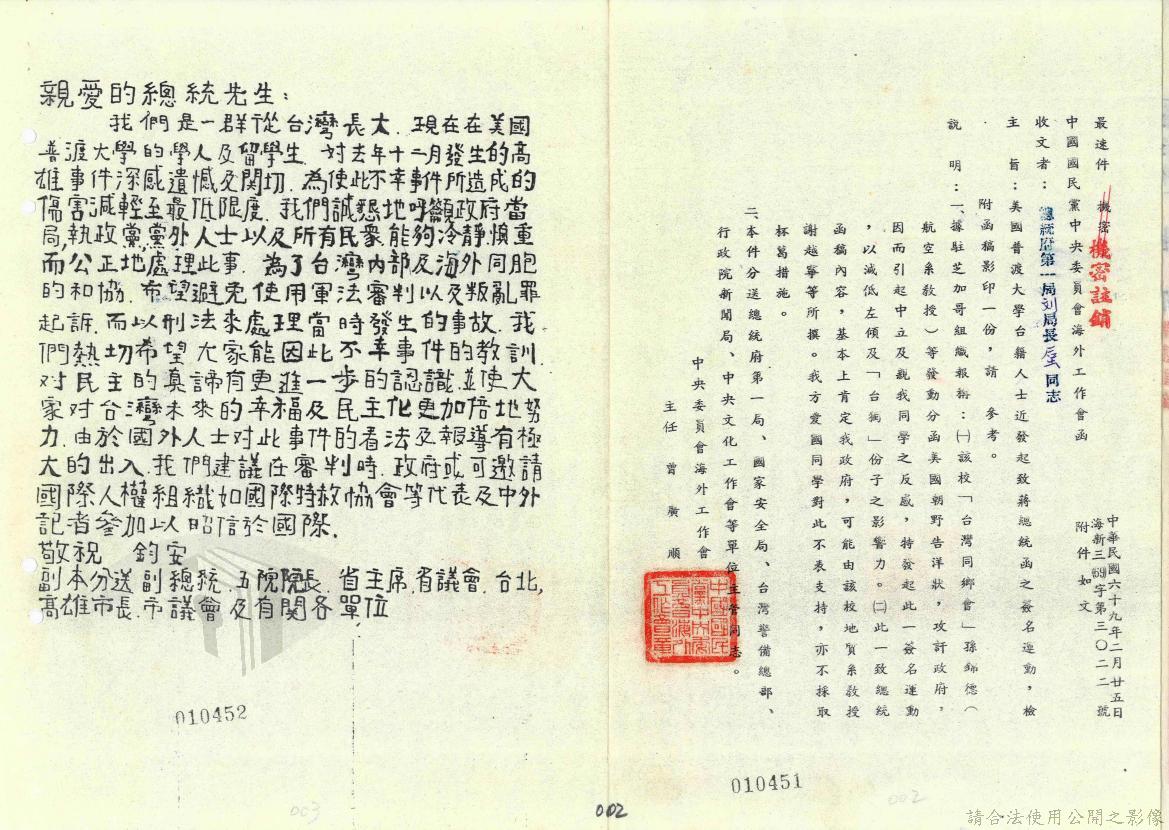 最速件 機密
機密註銷
中國國民黨中央委員會海外工作會函
中華民國六十九年二月廿五日
海新三(69)字第三〇二二號
附件如文
收文者：總統府第一局刘局長 同志
主 旨：美國普渡大學台籍人士近發起致蔣總統函之簽名運動，檢
附函稿影印一份，請 參考。
說 明：一、據駐芝加哥組織報稱：㈠該校「台灣同鄉會」孫錦德（
航空系教授）等發動分函美國朝野告洋狀，攻訐政府，
因而引起中立及親我同學之反感，特發起此一簽名運動
，以減低左傾及「台獨」份子之影響力。㈡此一致總統
函稿內容，基本上肯定我政府，可能由該校地質系教授
謝越寧等所撰。我方愛國同學對此不表支持，亦不採取
杯葛措施。
二、本件分送總統府第一局、國家安全局、台灣警備總部、
行政院新聞局、中央文化工作會等單位主管同志。
中央委員會海外工作會
主任 曾廣順
010451
002
親愛的總統先生：
我們是一群從台灣長大．現在在美國
普渡大學的學人及留學生．對去年十二月發生的高
雄事件深感遺憾及関切．為使此不幸事件所造成的
傷害減輕至最低限度．我們誠懇地呼籲政府當
局,執政黨,黨外人士以及所有民衆,能夠冷靜．慎重
而公正地處理此事．為了台灣內部及海外同胞
的和協．希望避免使用軍法審判以及叛亂罪
起訴．而以刑法來處理當時發生的事故．我
們熱切希望大家能因此不幸事件的教訓．
对民主的真諦有更進一步的認識．並使大
家对台灣未來的幸福及民主化更加倍地努
力．由於國外人士对此事件的看法及報導有極
大的出入．我們建議在審判時．政府或可邀請
國際人權組織如國際特赦協會等代表及中外
記者參加以昭信於國際．
敬祝 鈞安
副本分送副總統．五院院長．省主席．省議會．台北,
高雄市長．市議會及有関各單位
010452
003
002
請合法使用公開之影像